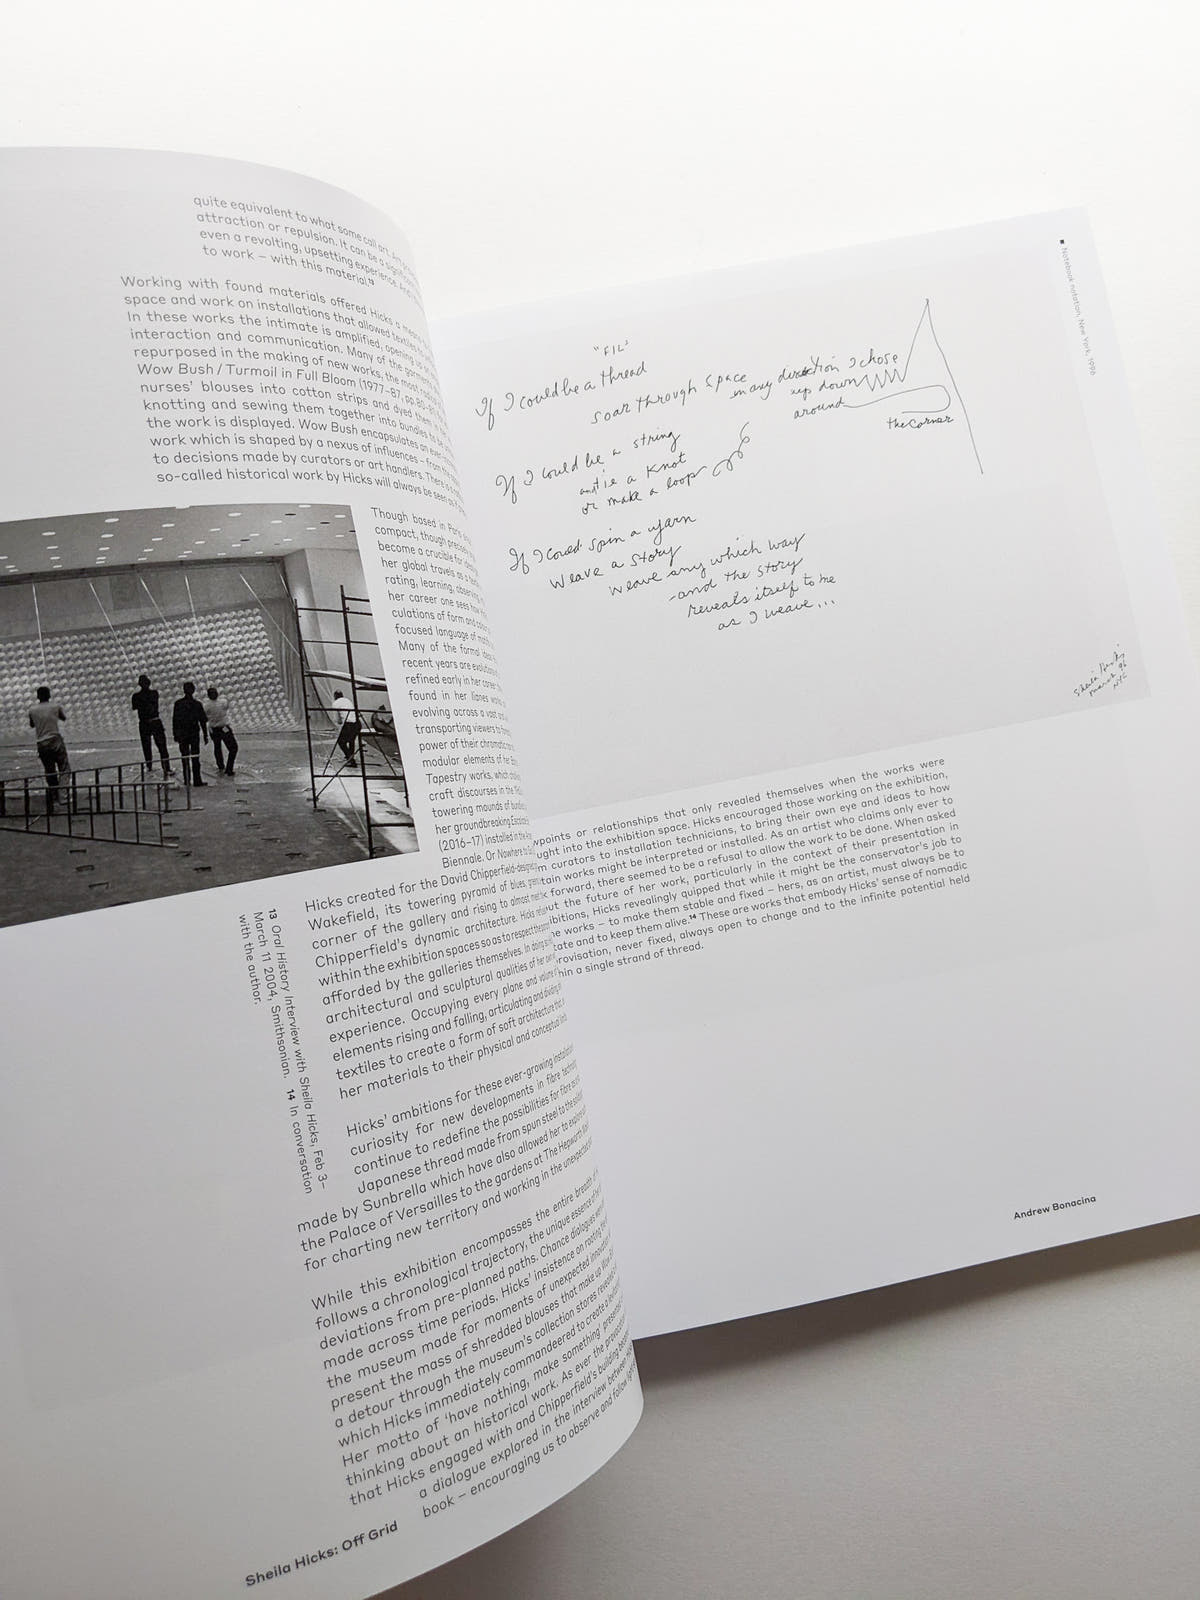 quite equivalent to what some call art.
attraction or repulsion. It can be a
even a revolting, upsetting experience. And
to work – with this material.¹³
Working with found materials offered Hicks a
space and work on installations that allowed textiles
In these works the intimate is amplified, opening up
interaction and communication. Many of the garments
repurposed in the making of new works, the most
Wow Bush / Turmoil in Full Bloom (1977–87, pp.80–
nurses' blouses into cotton strips and dyed them
knotting and sewing them together into bundles to be
the work is displayed. Wow Bush encapsulates an ever-
work which is shaped by a nexus of influences – from
to decisions made by curators or art handlers. There is
so-called historical work by Hicks will always be seen
Though based in Paris
compact, though
become a crucible for
her global travels as a
rating, learning, observing
her career one sees how
culations of form and colour
focused language of
Many of the formal ideas
recent years are
refined early in her career
found in her lianes works
evolving across a vast
transporting viewers to
power of their chromatic
modular elements of her
Tapestry works, which
craft discourses in the
towering mounds of bundles
her groundbreaking
(2016–17) installed in the
Biennale. Or Nowhere to Go
Hicks created for the David Chipperfield-designed
Wakefield, its towering pyramid of blues, greens
corner of the gallery and rising to almost
Chipperfield's dynamic architecture. Hicks
within the exhibition spaces so as to respect the
afforded by the galleries themselves. In doing
architectural and sculptural qualities of her own
experience. Occupying every plane and volume
elements rising and falling, articulating and dividing
textiles to create a form of soft architecture that
her materials to their physical and conceptual limits
Hicks' ambitions for these ever-growing installations
curiosity for new developments in fibre technology
continue to redefine the possibilities for fibre
Japanese thread made from spun steel to the
made by Sunbrella which have also allowed her to
the Palace of Versailles to the gardens at The Hepworth
for charting new territory and working in the unexpected
While this exhibition encompasses the entire breadth of
follows a chronological trajectory, the unique essence of
deviations from pre-planned paths. Chance dialogues
made across time periods. Hicks' insistence on
the museum made for moments of unexpected
present the mass of shredded blouses that make up Wow
a detour through the museum's collection stores revealed
which Hicks immediately commandeered to create a
Her motto of 'have nothing, make something'
thinking about an historical work. As ever the
that Hicks engaged with and Chipperfield's building
a dialogue explored in the interview between
book – encouraging us to observe and follow
13 Oral History Interview with Sheila Hicks, Feb 3–
March 11 2004, Smithsonian. 14 In conversation
with the author.
Sheila Hicks: Off Grid
Notebook notation, New York, 1996
"FIL"
If I could be a thread
soar through space
in any direction I chose
up down
around
the corner
If I could be a string
and tie a knot
or make a loop
If I could spin a yarn
weave a story
weave any which way
and the story
reveals itself to me
as I weave...
Sheila Hicks
march 96
NYC
wpoints or relationships that only revealed themselves when the works were
ught into the exhibition space. Hicks encouraged those working on the exhibition,
m curators to installation technicians, to bring their own eye and ideas to how
tain works might be interpreted or installed. As an artist who claims only ever to
k forward, there seemed to be a refusal to allow the work to be done. When asked
ut the future of her work, particularly in the context of their presentation in
ibitions, Hicks revealingly quipped that while it might be the conservator's job to
e works – to make them stable and fixed – hers, as an artist, must always be to
tate and to keep them alive.¹⁴ These are works that embody Hicks' sense of nomadic
rovisation, never fixed, always open to change and to the infinite potential held
hin a single strand of thread.
Andrew Bonacina